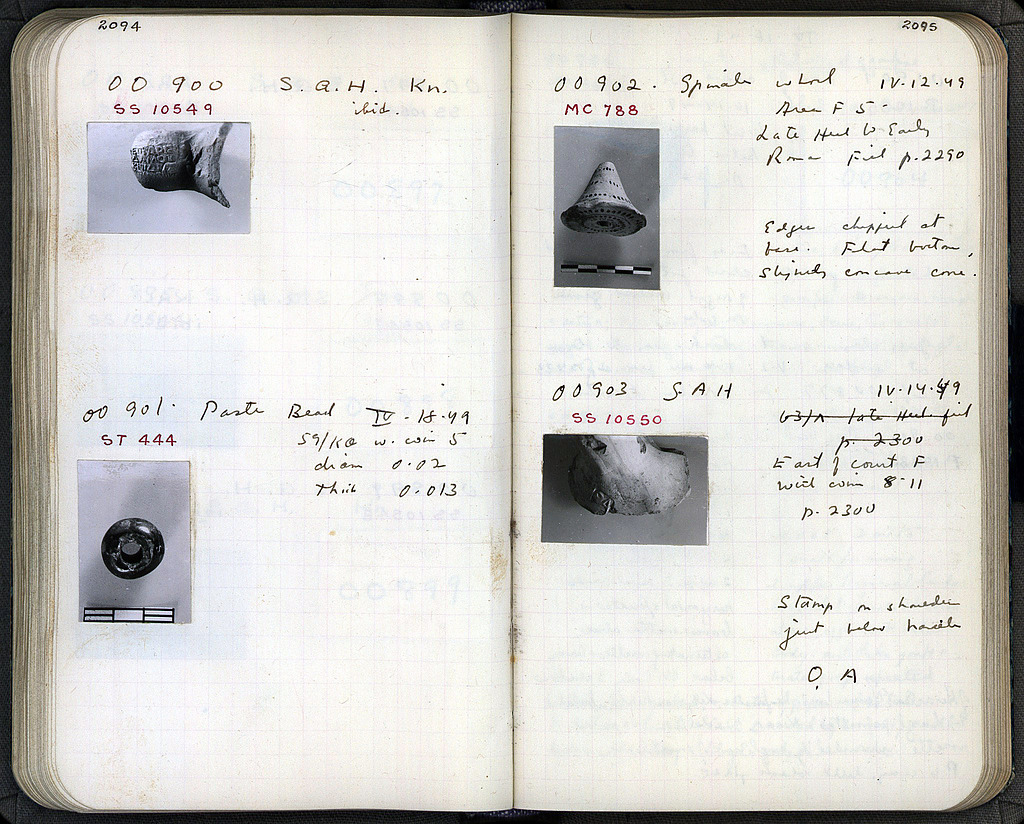 2094
OO 900 S.A.H. Kn.
SS 10549 ibid.
OO 901. Paste Bead IV-18-49
ST 444 59/KΘ w. coin 5
diam 0.02
thick 0.013
2095
OO 902. Spindle whorl IV-12-49
MC 788 Area F 5
Late Hell to Early
Roman Fill p. 2290
Edges chipped at
base. Flat bottom,
slightly concave cone.
OO 903 S A H IV-14-49
SS 10550 63/Λ late Hell fill
p. 2300
East of court F
with coin 8-11
p. 2300
Stamp on shoulder
just below handle
O A